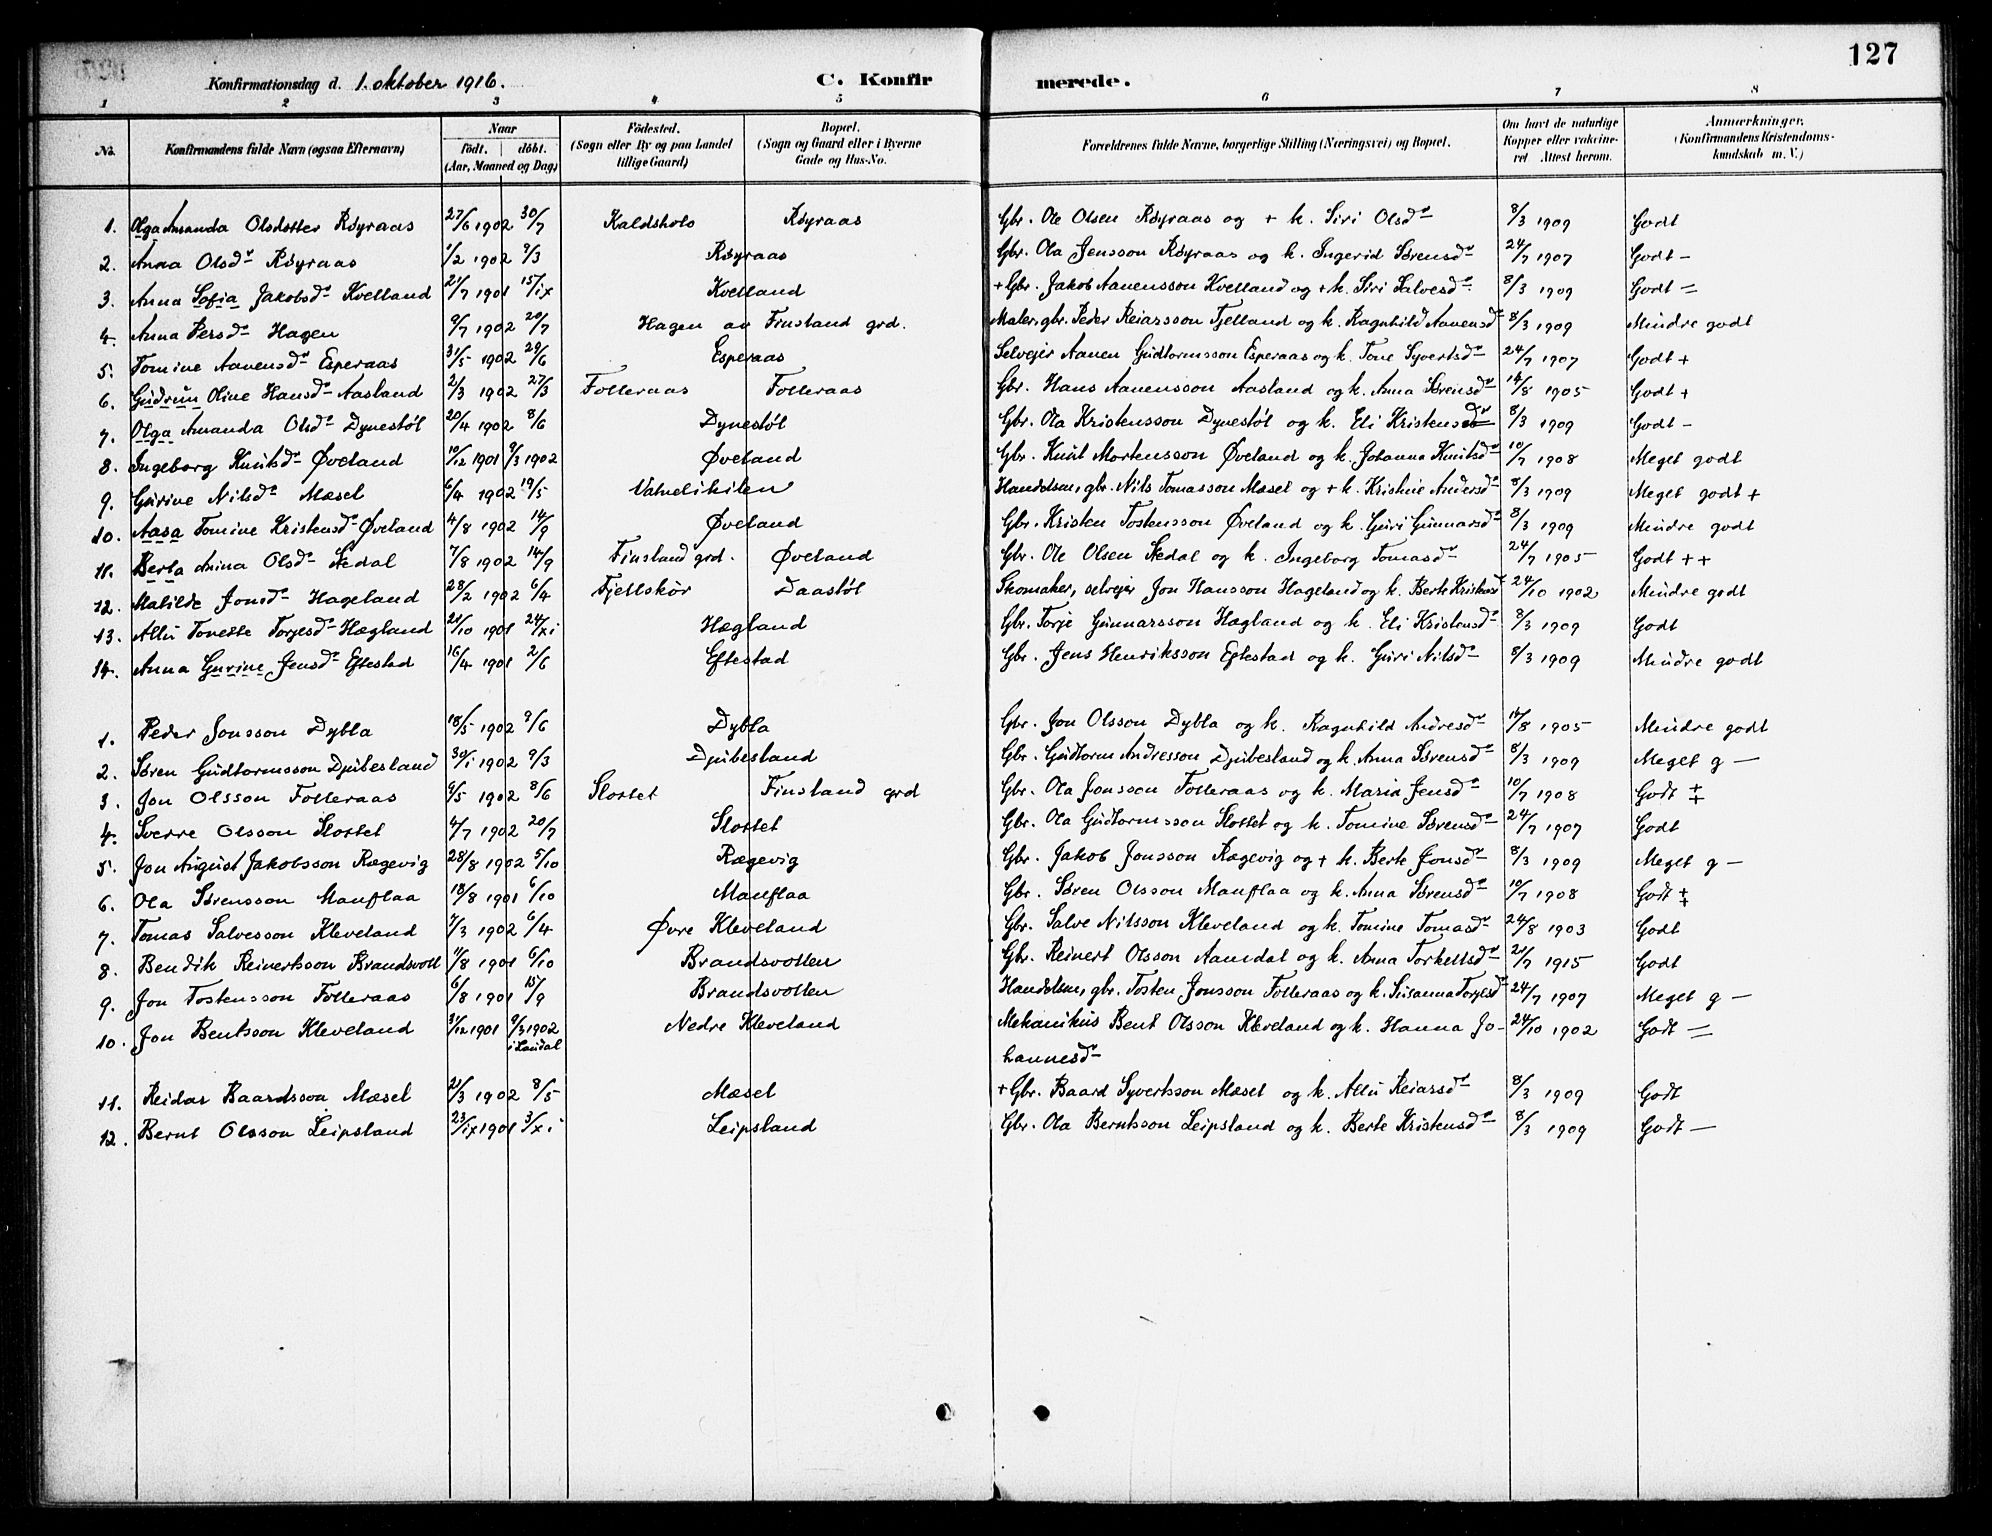 127
Konfirmationsdag d. 1. oktober 1916. C. Konfirmerede.
1 2 3 4 5 6 7 8
No. Konfirmandens fulde Navn (ogsaa Efternavn) Naar födt. döbt. (Aar, Maaned og Dag) Födested. (Sogn eller By og paa Landet tillige Gaard) Bopæl. (Sogn og Gaard eller i Byerne Gade og Hus-No. Forældrenes fulde Navne, borgerlige Stilling (Næringsvei) og Bopæl. Om havt de naturlige Kopper eller vakcineret Attest herom. Anmærkninger. (Konfirmandens Kristendomskundskab m. V.)
1. Olga Amanda Olsdotter Röyraas 27/6 1902 30/7 Kaldshols Röyraas Gbr. Ole Olsen Röyraas og + k. Siri Olsd 8/3 1909 Godt
2. Anna Olsd Röyraas 1/2 1902 9/3 Röyraas Gbr. Ola Jensson Röyraas og k. Ingerid Sörensd 24/7 1907 Godt -
3. Anna Sofia Jakobsd Kvelland 21/7 1901 15/ix Kvelland + Gbr. Jakob Aanensson Kvelland og + k. Siri Salvesd 8/3 1909 Godt =
4. Anna Persd Hagen 9/7 1902 20/7 Hagen av Finsland grd. Maler, gbr. Peder Reiarsson Tjelland og k. Ragnhild Aanensd 8/3 1909 Mindre godt
5. Tomine Aanensd Esperaas 31/5 1902 29/6 Esperaas Selvejer Aanen Gudtormsson Esperaas og k. Tone Syvertsd 24/7 1907 Godt +
6. Gudrun Oline Hansd Aasland 2/3 1902 27/3 Folleraas Folleraas Gbr. Hans Aanensson Aasland og k. Anna Sörensd 14/8 1905 Godt +
7. Olga Amanda Olsd Dynestöl 20/4 1902 8/6 Dynestöl Gbr. Ola Kristensson Dynestöl og k. Eli Kristensd 8/3 1909 Godt -
8. Ingeborg Knutsd Øveland 10/12 1901 9/3 1902 Øveland Gbr. Knut Mortensson Øveland og k. Johanna Knutsd 10/7 1908 Meget godt
9. Gurine Nilsd Mæsel 6/4 1902 19/5 Vatnelikilen Handelsm, gbr. Nils Tomasson Mæsel og + k. Kristine Andersd 8/3 1909 Meget godt +
10. Aasa Tomine Kristensd Øveland 4/8 1902 14/9 Øveland Gbr. Kristen Tostensson Øveland og k. Guri Gunnarsd 8/3 1909 Mindre godt
11. Berta Anina Olsd Stedal 7/8 1902 14/9 Finsland grd. Øveland Gbr. Ole Olsen Stedal og k. Ingeborg Tomasd 24/7 1905 Godt ++
12. Matilde Jonsd Hageland 28/2 1902 6/4 Fjellskör Daastöl Skomaker, selvejer Jon Hansson Hageland og k. Berte Kristensd 24/10 1902 Mindre godt
13. Allu Tonette Torjesd Hægland 21/10 1901 24/xi Hægland Gbr. Torje Gunnarsson Hægland og k. Eli Kristensd 8/3 1909 Godt
14. Anna Gurine Jensd Eftestad 16/4 1901 2/6 Eftestad Gbr. Jens Henriksson Eftestad og k. Guri Nilsd 8/3 1909 Mindre godt
1. Peder Jonsson Dybla 18/5 1902 9/6 Dybla Gbr. Jon Olsson Dybla og k. Ragnhild Andresd 14/8 1905 Mindre godt
2. Sören Gudtormsson Djubesland 30/1 1902 9/3 Djubesland Gbr. Gudtorm Andresson Djubesland og k. Anna Sörensd 8/3 1909 Meget g —
3. Jon Olsson Folleraas 9/5 1902 8/6 Slottet Finsland grd Gbr. Ola Jonsson Folleraas og k. Maria Jensd 10/7 1908 Godt ‡
4. Sverre Olsson Slottet 4/7 1902 20/7 Slottet Gbr. Ola Gudtormsson Slottet og k. Tomine Sörensd 24/7 1907 Godt
5. Jon August Jakobsson Rægevig 28/8 1902 5/10 Rægevig Gbr. Jakob Jonsson Rægevig og + k. Berte Jonsd 8/3 1909 Meget g —
6. Ola Sörensson Manflaa 18/8 1901 6/10 Manflaa Gbr. Sören Olsson Manflaa og k. Anna Sörensd 10/7 1908 Godt ‡
7. Tomas Salvesson Kleveland 7/3 1902 6/4 Øvre Kleveland Gbr. Salve Nilsson Kleveland og k. Tomine Tomasd 24/8 1903 Godt
8. Bendik Reinertsson Brandsvoll 11/8 1901 6/10 Brandsvollen Gbr. Reinert Olsson Aamdal og k. Anna Torkellsd 21/7 1915 Godt
9. Jon Tostensson Folleraas 6/8 1901 15/9 Brandsvollen Handelsm, gbr. Tosten Jonsson Folleraas og k. Susanna Torjesd 24/7 1907 Meget g —
10. Jon Bentsson Kleveland 31/12 1901 9/3 1902 i Laudal Nedre Kleveland Mekanikus Bent Olsson Kleveland og k. Hanna Jo- 24/10 1902 Godt =
hannesd
11. Reidar Baardsson Mæsel 21/3 1902 8/5 Mæsel + Gbr. Baard Syvertsson Mæsel og k. Allu Reiarsd 8/3 1909 Godt
12. Bernt Olsson Leipsland 23/ix 1901 3/xi Leipsland Gbr. Ola Berntsson Leipsland og k. Berte Kristensd 8/3 1909 Godt —